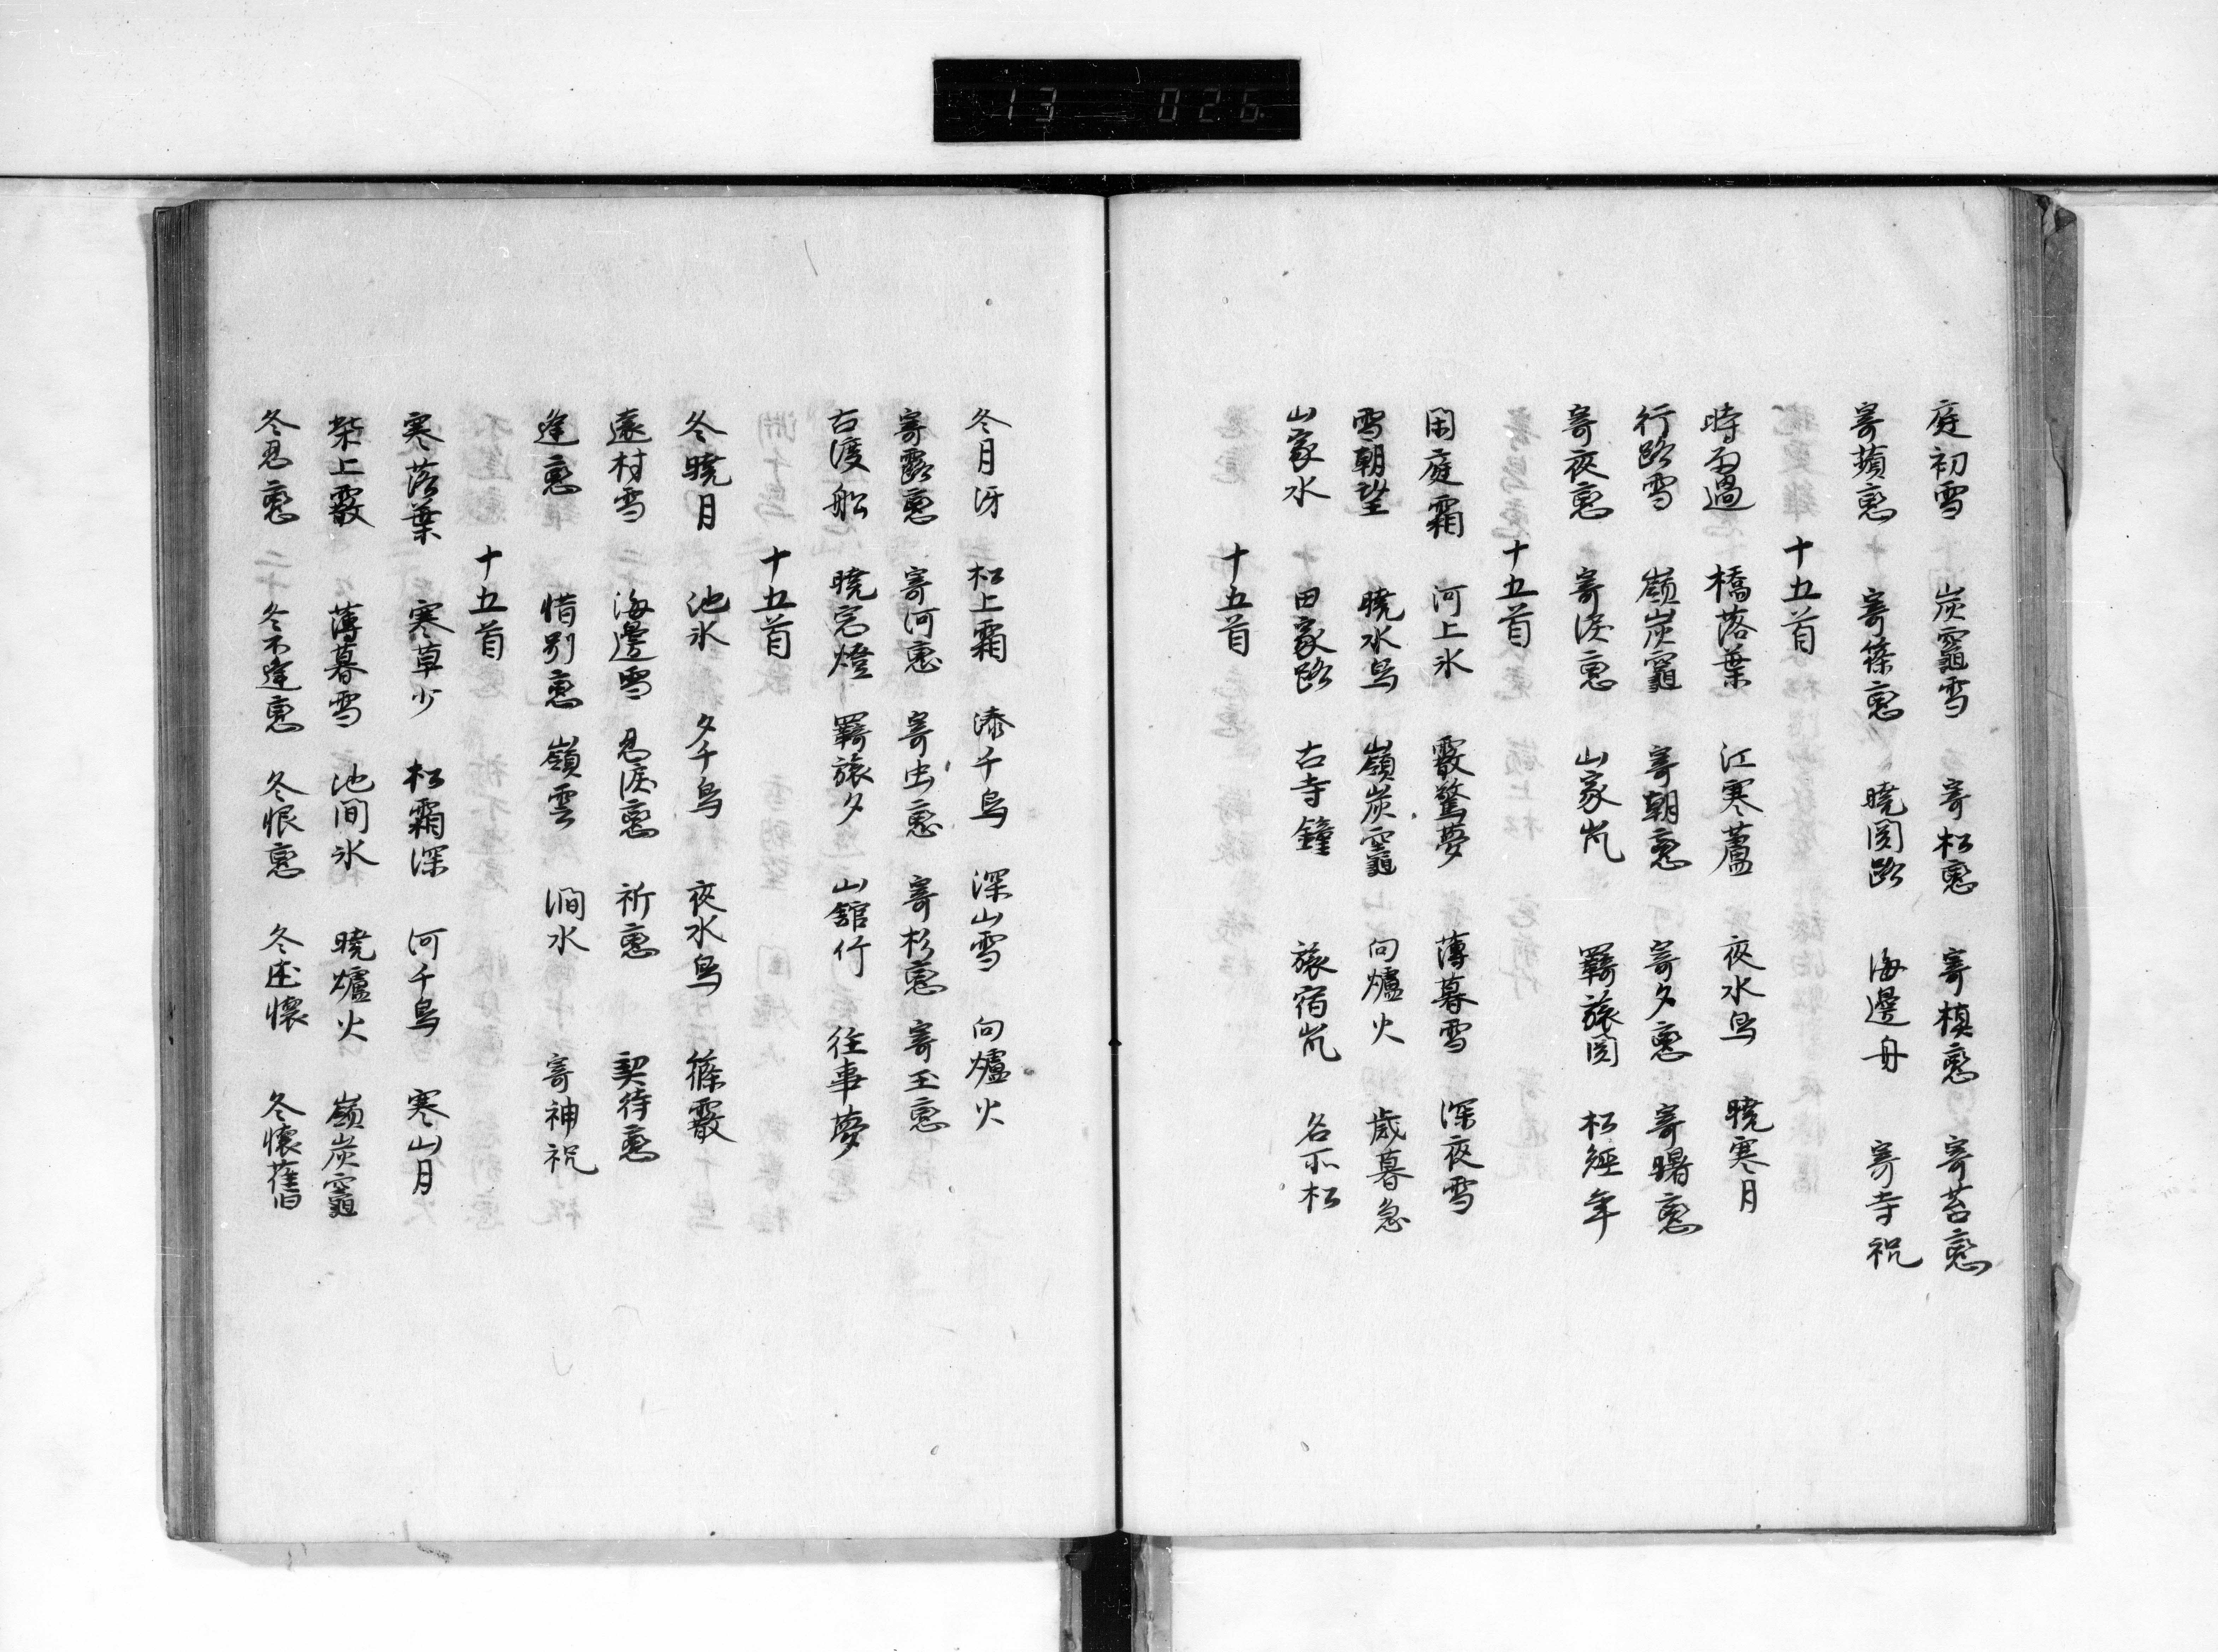 13 026
庭初雪 炭竈雪 寄松戀 寄槙戀 寄苔戀
寄蘋戀 寄篠戀 暁関路 海邊舟 寄寺祝
十五首
時雨過 橋落葉 江寒蘆 夜水鳥 暁寒月
行路雪 嶺炭竈 寄朝戀 寄夕戀 寄曙戀
寄夜戀 寄涙戀 山家嵐 羇旅関 松経年
十五首
閑庭霜 河上氷 霰驚夢 薄暮雪 深夜雪
雪朝望 暁水鳥 嶺炭竈 向爐火 歳暮急
山家水 田家路 古寺鐘 旅宿嵐 名所松
十五首
冬月冴 松上霜 湊千鳥 深山雪 向爐火
寄露戀 寄河戀 寄虫戀 寄杉戀 寄玉戀
古渡船 暁窓燈 羇旅夕 山舘竹 往事夢
十五首
冬暁月 池氷 夕千鳥 夜水鳥 篠霰
遠村雪 海邊雪 忍涙戀 祈戀 契待戀
逢戀 惜別戀 嶺雲 澗水 寄神祝
十五首
寒落葉 寒草少 松霜深 河千鳥 寒山月
柴上霰 薄暮雪 池間氷 暁爐火 嶺炭竈
冬忍戀 冬不逢戀 冬恨戀 冬述懐 冬懐舊